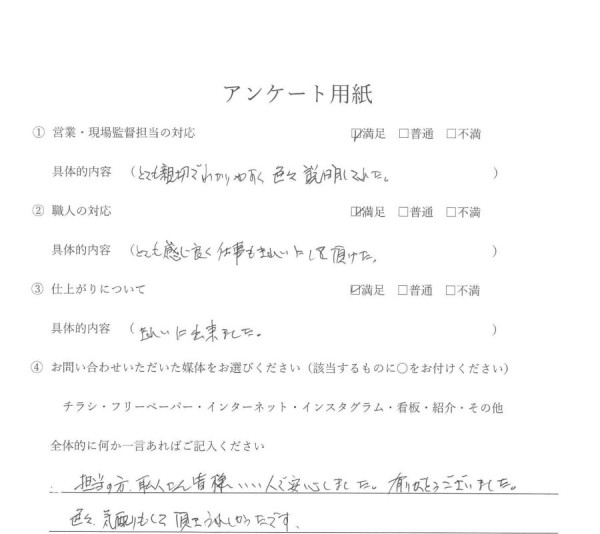 アンケート用紙
① 営業・現場監督担当の対応 ☑満足 □普通 □不満
具体的内容 (とても親切でわかりやすく色々説明してくれた。)
② 職人の対応 ☑満足 □普通 □不満
具体的内容 (とても感じ良く仕事もきれいにして頂けた。)
③ 仕上がりについて ☑満足 □普通 □不満
具体的内容 (きれいに出来ました。)
④ お問い合わせいただいた媒体をお選びください(該当するものに○をお付けください)
チラシ・フリーペーパー・インターネット・インスタグラム・看板・紹介・その他
全体的に何か一言あればご記入ください
担当の方、職人さん皆様いい人で安心しました。有りがとうございました。
色々、気配りもして頂きうれしかったです。